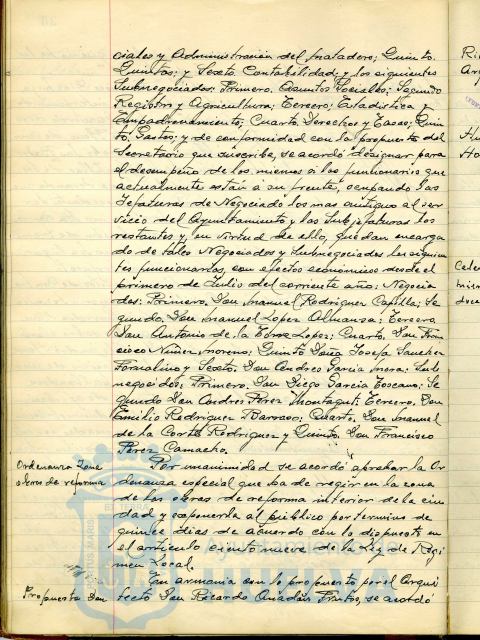 ciales y Administración del matadero; Quinto.
Quintas; y Sexto. Contabilidad; y los siguientes
Subnegociados: Primero. Asuntos Sociales; Segundo
Registro y Agricultura; Tercero; Estadística y
Empadronamiento; Cuarto. Derechos y Tasas; Quin
to. Gastos; y de conformidad con la propuesta del
Secretario que suscribe, se acordó designar para
el desempeño de los mismos a los funcionarios que
actualmente están a su frente, ocupando las
Jefaturas de Negociado los mas antiguos al ser
vicio del Ayuntamiento y las Subjefaturas los
restantes y, en virtud de ello, quedan encarga
do de tales Negociados y Subnegociados los siguien
tes funcionarios, con efectos económicos desde el
primero de Julio del corriente año: Negocia
dos: Primero. Don Manuel Rodriguez Capilla; Se
gundo. Don Manuel Lopez Almanza; Tercero
Don Antonio de la Torre Lopez; Cuarto. Don Fran
cisco Nuñez Moreno; Quinto Doña Josefa Sanchez
y Sexto. Don Andres Garcia Mora: Sub
negociados: Primero. Don Diego Garcia Toscano; Se
gundo Don Andres Pérez Montagut; Tercero. Don
Emilio Rodriguez Barroso; Cuarto. Don Manuel
de la Corte Rodriguez y Quinto. Don Francisco
Perez Camacho.
Ordenanza Zona
obras de reforma
Por unanimidad se acordó aprobar la Or
denanza especial que ha de regir en la zona
de las obras de reforma interior de la ciu
dad y exponerla al público por termino de
quince dias de acuerdo con lo dispuesto en
el articulo ciento nueve de la Ley de Regi
men Local.
Propuesta Don
En armonia con lo propuesto por el Arqui
tecto Don Ricardo Anadón Frutos, se acordó